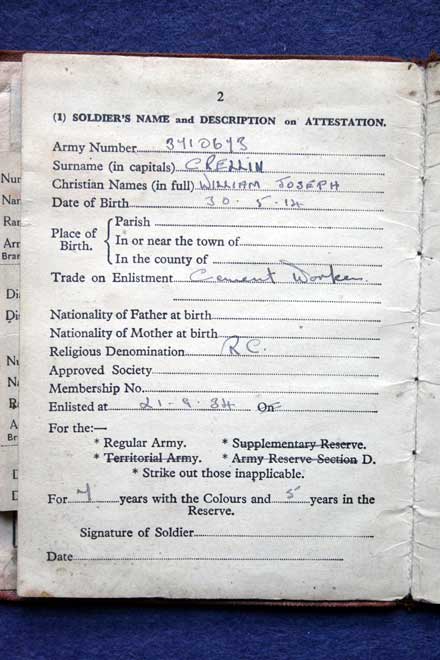 2
(1) SOLDIER'S NAME and DESCRIPTION on ATTESTATION.
Army Number 3710673
Surname (in capitals) CRELLIN
Christian Names (in full) WILLIAM JOSEPH
Date of Birth 30. 5. 14
Place of Birth.
Parish
In or near the town of
In the county of
Trade on Enlistment Cement Worker
Nationality of Father at birth
Nationality of Mother at birth
Religious Denomination RC.
Approved Society
Membership No.
Enlisted at 21-9.34 On
For the:—
* Regular Army. * Supplementary Reserve.
* Territorial Army. * Army Reserve Section D.
* Strike out those inapplicable.
For 7 years with the Colours and 5 years in the
Reserve.
Signature of Soldier
Date